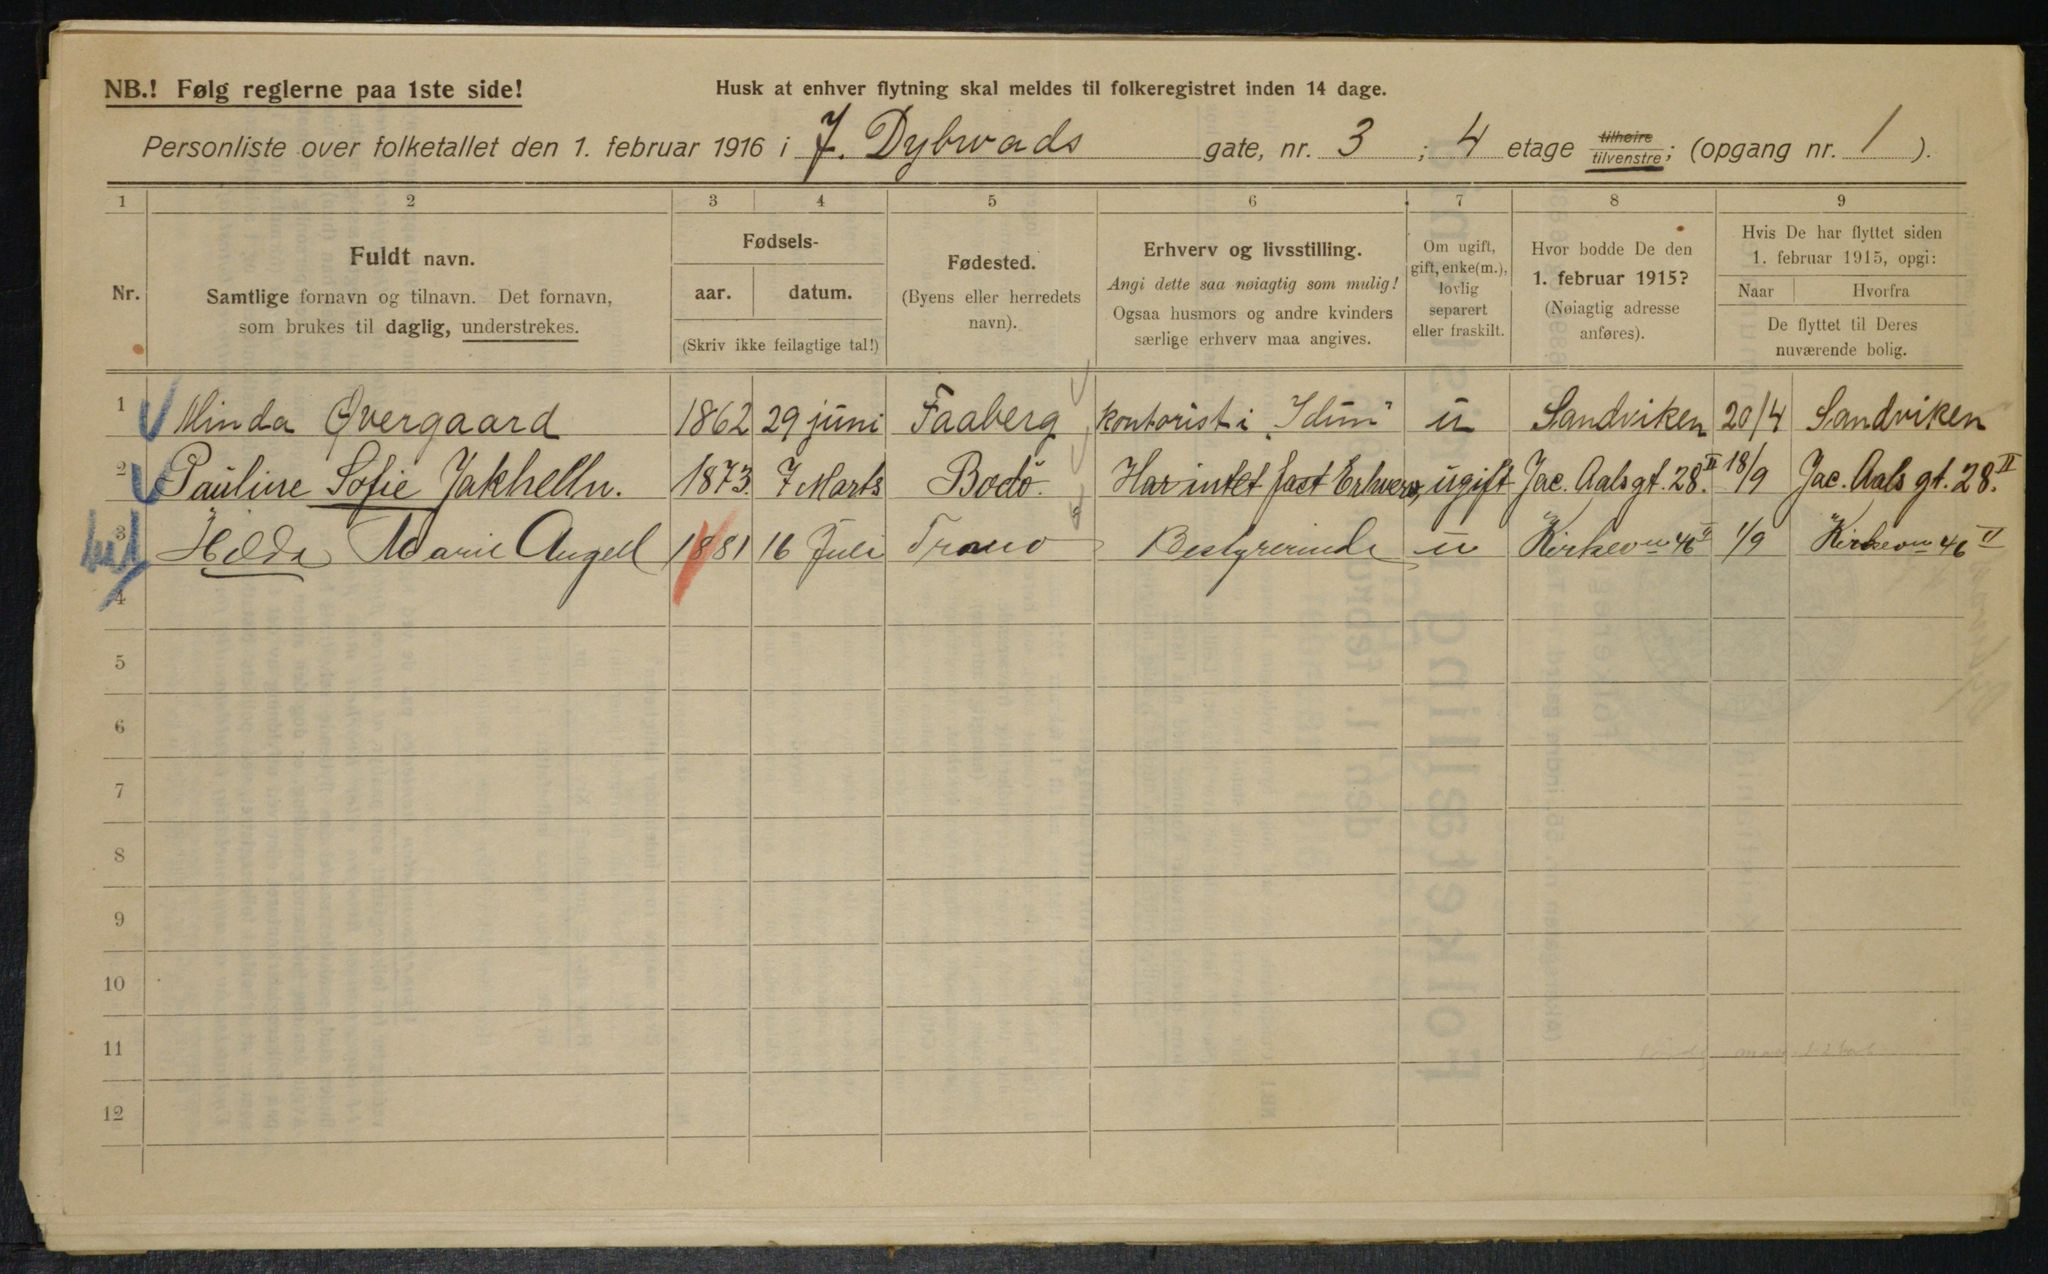 NB.! Følg reglerne paa 1ste side!
Husk at enhver flytning skal meldes til folkeregistret inden 14 dage.
Personliste over folketallet den 1. februar 1916 i J. Dybwads gate, nr. 3 ; 4 etage tilhøire tilvenstre; (opgang nr. 1 ).
1 2 3 4 5 6 7 8 9
Nr.
Fuldt navn.
Samtlige fornavn og tilnavn. Det fornavn,
som brukes til daglig, understrekes.
Fødsels-
aar. datum.
(Skriv ikke feilagtige tal!)
Fødested.
(Byens eller herredets
navn).
Erhverv og livsstilling.
Angi dette saa nøiagtig som mulig!
Ogsaa husmors og andre kvinders
særlige erhverv maa angives.
Om ugift,
gift, enke(m.),
lovlig
separert
eller fraskilt.
Hvor bodde De den
1. februar 1915?
(Nøiagtig adresse
anføres).
Hvis De har flyttet siden
1. februar 1915, opgi:
Naar Hvorfra
De flyttet til Deres
nuværende bolig.
1 Minda Øvergaard 1862 29 juni Faaberg kontorist i "Idun" u Sandviken 20/4 Sandviken
2 Pauline Sofie Jakhelln. 1873. 7 Marts Bodö. Har intet fast Erhverv, ugift Jac. Aals gt. 28. II 18/9 Jac. Aals gt. 28. II
3 Hilda Marie Angell 1881 16 Juli Tranø Bestyrerinde u Kirkevn 46 II 1/9 Kirkevn 46 II
4
5
6
7
8
9
10
11
12